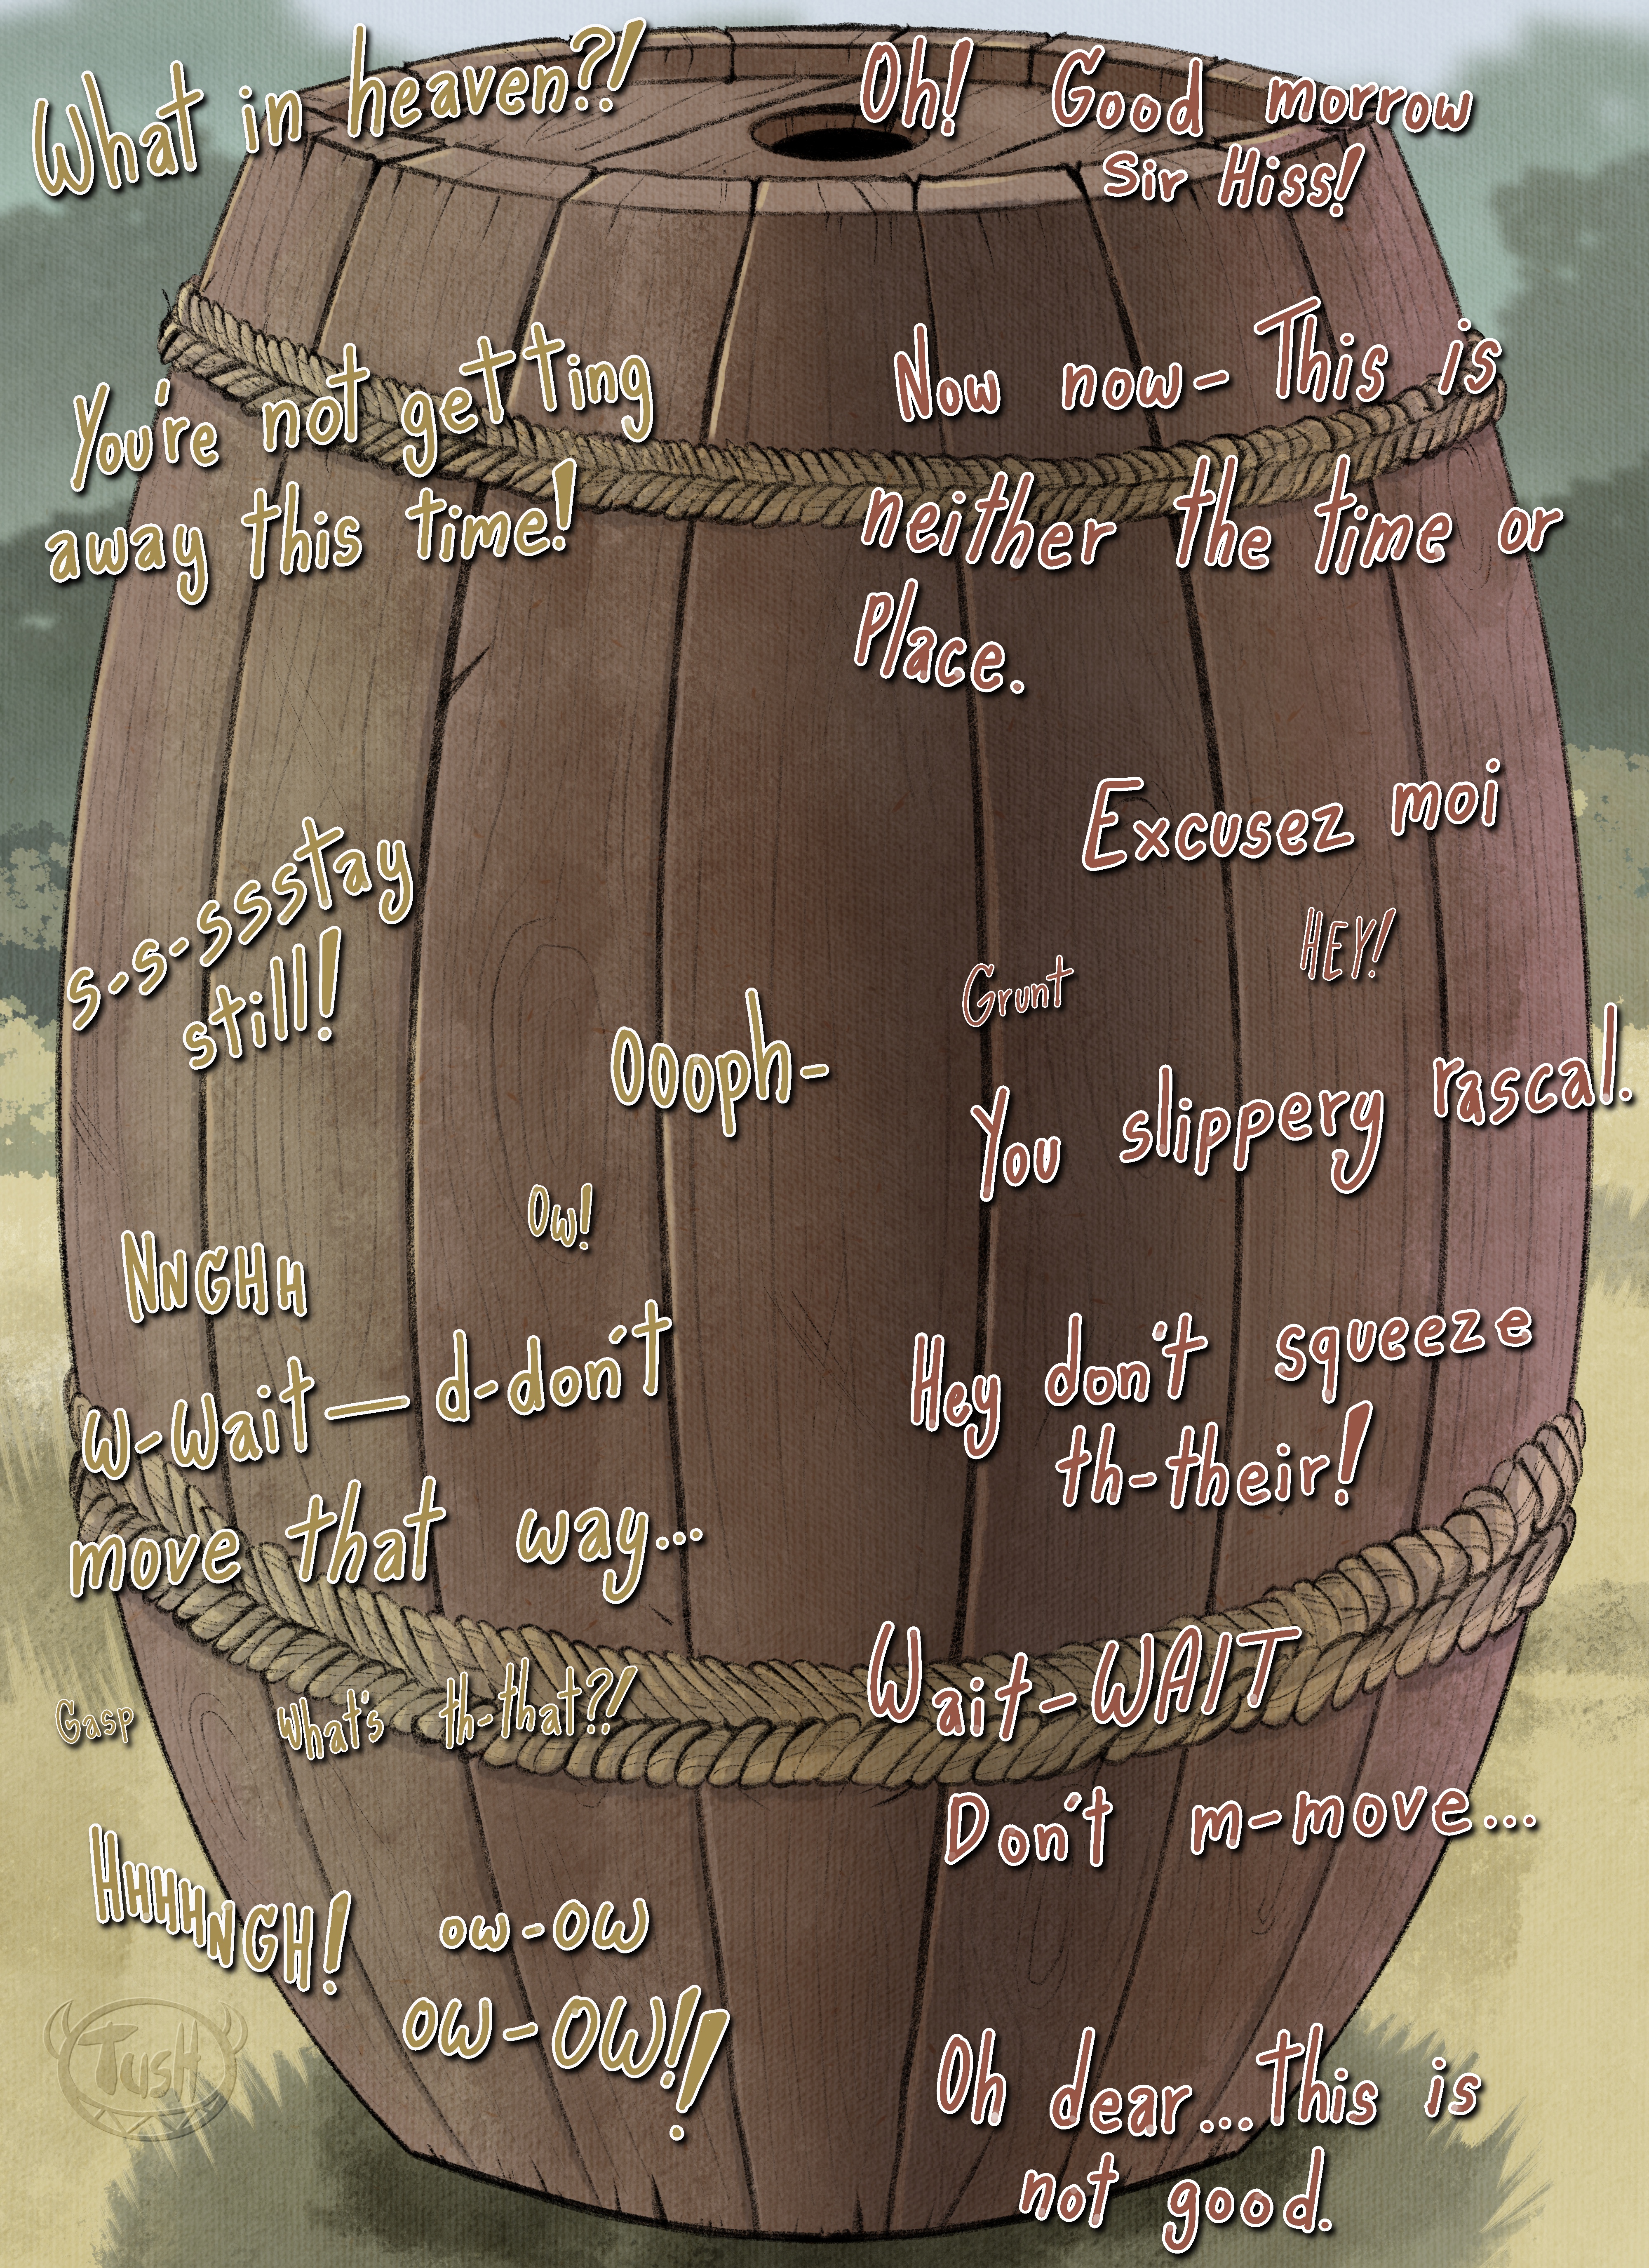 What in heaven?!
Oh! Good morrow
Sir Hiss!
You're not getting
away this time!
Now now- This is
neither the time or
Place.
Excusez moi
s-s-ssstay
still!
HEY!
Grunt
Oooph-
You slippery rascal.
Ow!
NNGHH
W-Wait— d-don't
move that way...
Hey don't squeeze
th-their!
Wait-WAIT
Gasp
What's th-that?!
Don't m-move...
HHHHNGH!
ow-OW
OW-OW!!
TUSH
Oh dear...This is
not good.